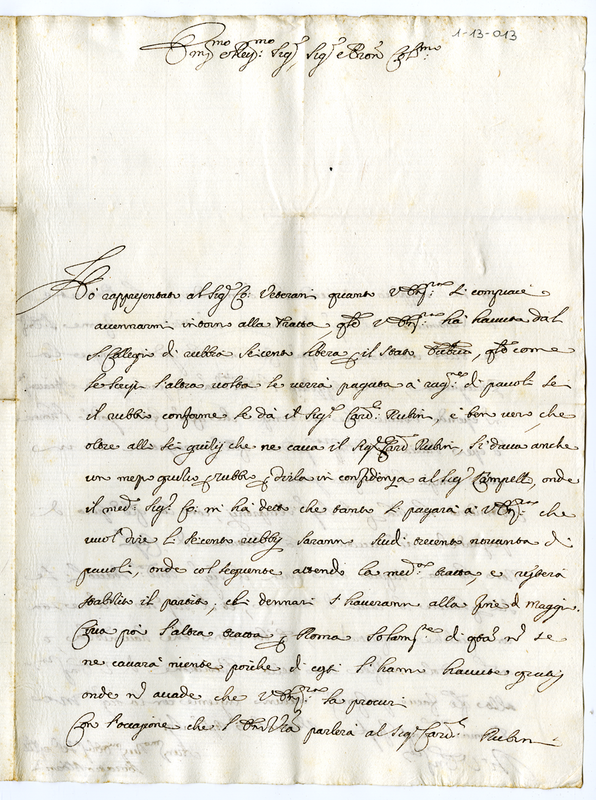 1-13-013
Em.mo e Rev.mo Sig.r, Sig.r e Pron Col.mo
Hò rappresentato al Sig.r Co: Veterani quanto V. Em.za si compiace
accennarmi intorno alla Tratta, q̃le V. Em.za ha havuta dal
S. Collegio di rubbia seicento libera p il Stato, q̃le come
le scrissi l'altra volta le verrà pagata à rag.ne di pavoli sei
il rubbio conforme le dà il Sig.r Card.l Rubini, è ben vero, che
oltre alli sei giulij che ne cava il Sig.r Card.l Rubini, si dava anche
un mezo giulio p rubbio p dirla in confidenza al Sig.r Campelli, onde
il med.o Sig.r Co: m'hà detto che tanto si pagarà à V. Em.za che
vuol dire li seicento rubbij saranno scudi trecento novanta di
pavoli, onde col seguente attendo la med.a tratta, e resterà
stabilito il partito, e li dennari s'haveranno alla fine di Maggio.
Circa poi l'altra tratta p Roma solam.te di q̃sta nõ se
ne cavarà niente poiche di costì s'hanno havute gratis
onde nõ accade che V. Em.za la procuri
Con l'occasione che l'Em.za V.ra parlerà al Sig.r Card.l Rubini